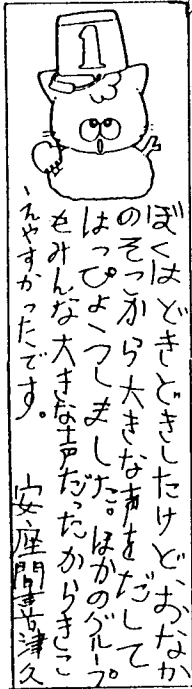 1
ぼくはどきどきしたけど、おなか
のそこから大きな声をだして
はっぴょうしました。ほかのグループ
もみんな大きな声だったからきこ
えやすかったです。
安座間喜津久